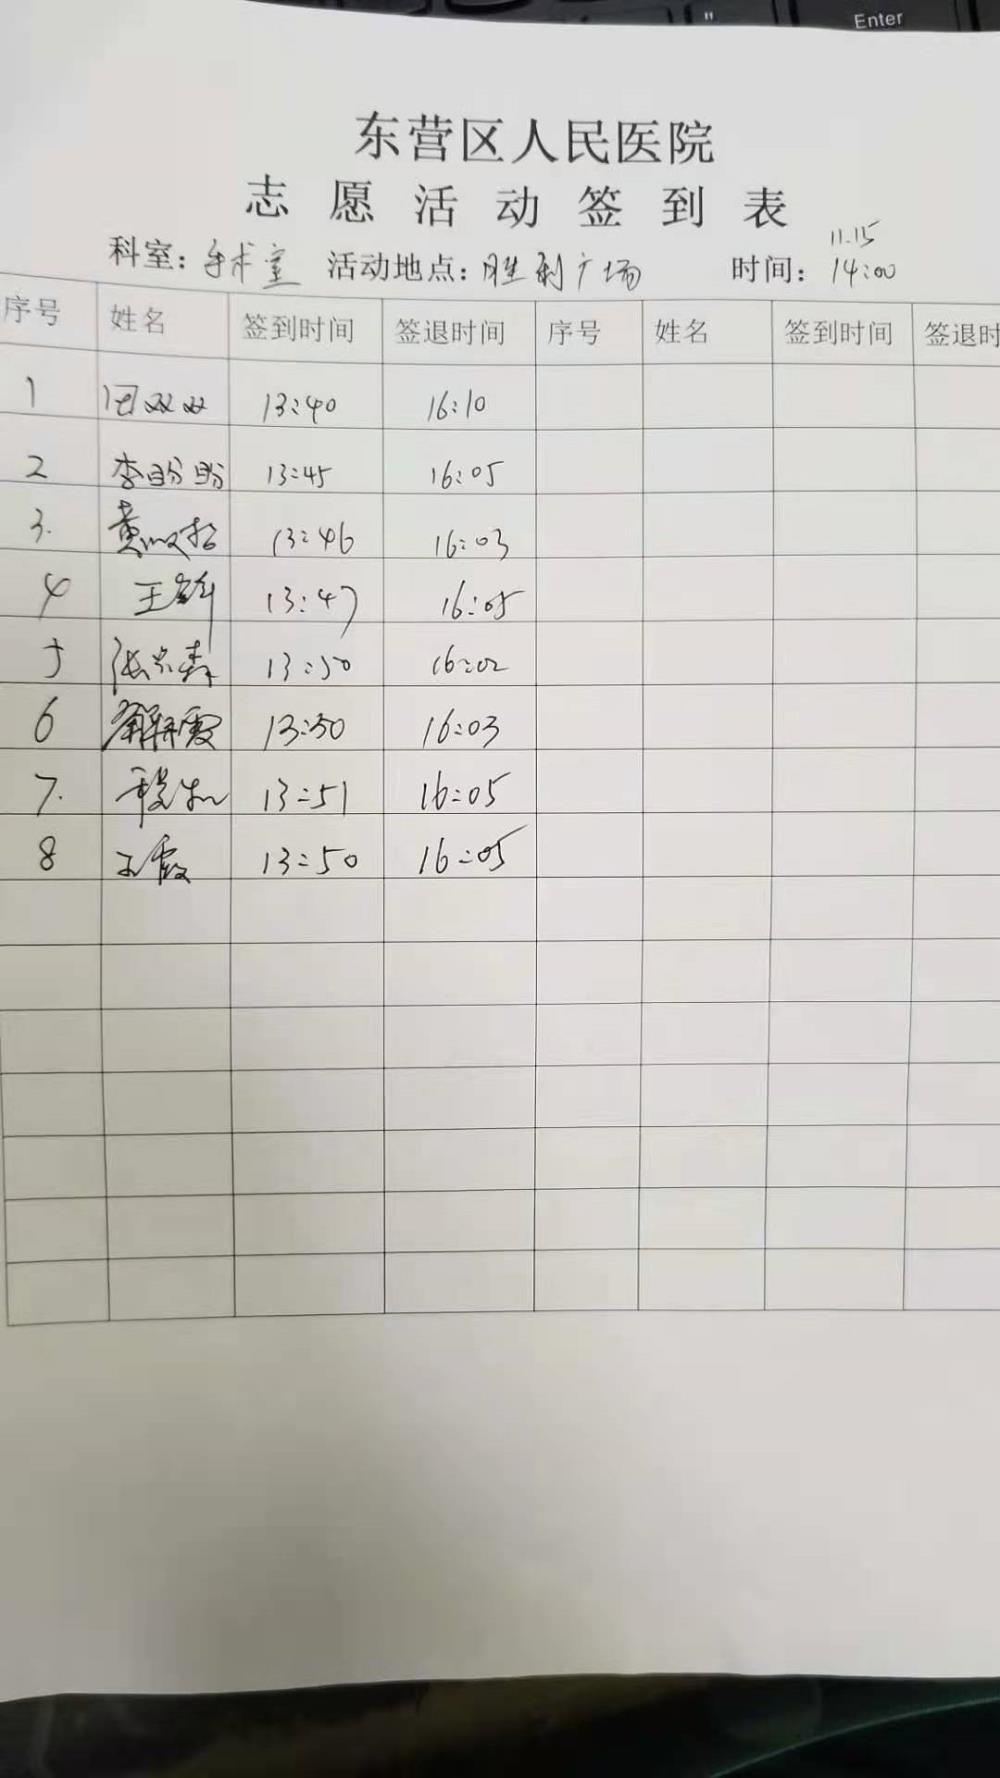 Enter
东营区人民医院
志愿活动签到表
11.15
科室：手术室 活动地点：胜利广场 时间：14:00
序号 姓名 签到时间 签退时间 序号 姓名 签到时间 签退时
1 田双双 13:40 16:10
2 李盼盼 13:45 16:05
3. 13:46 16:03
4 王 13:47 16:05
5 张 13:50 16:02
6 解霞 13:50 16:03
7. 13:51 16:05
8 王霞 13:50 16:05